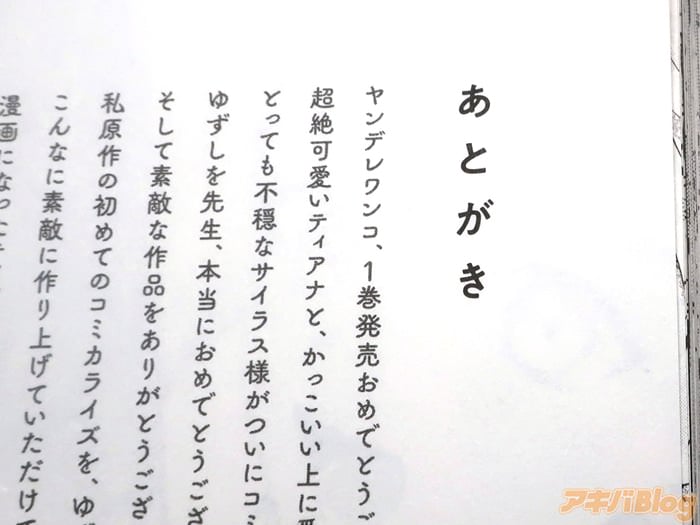 あとがき
ヤンデレワンコ、1巻発売おめでとうご
超絶可愛いティアナと、かっこいい上に
とっても不穏なサイラス様がついにコミ
ゆずしを先生、本当におめでとうござ
そして素敵な作品をありがとうござ
私原作の初めてのコミカライズを、ゆ
こんなに素敵に作り上げていただけ
漫画になった
アキバBlog